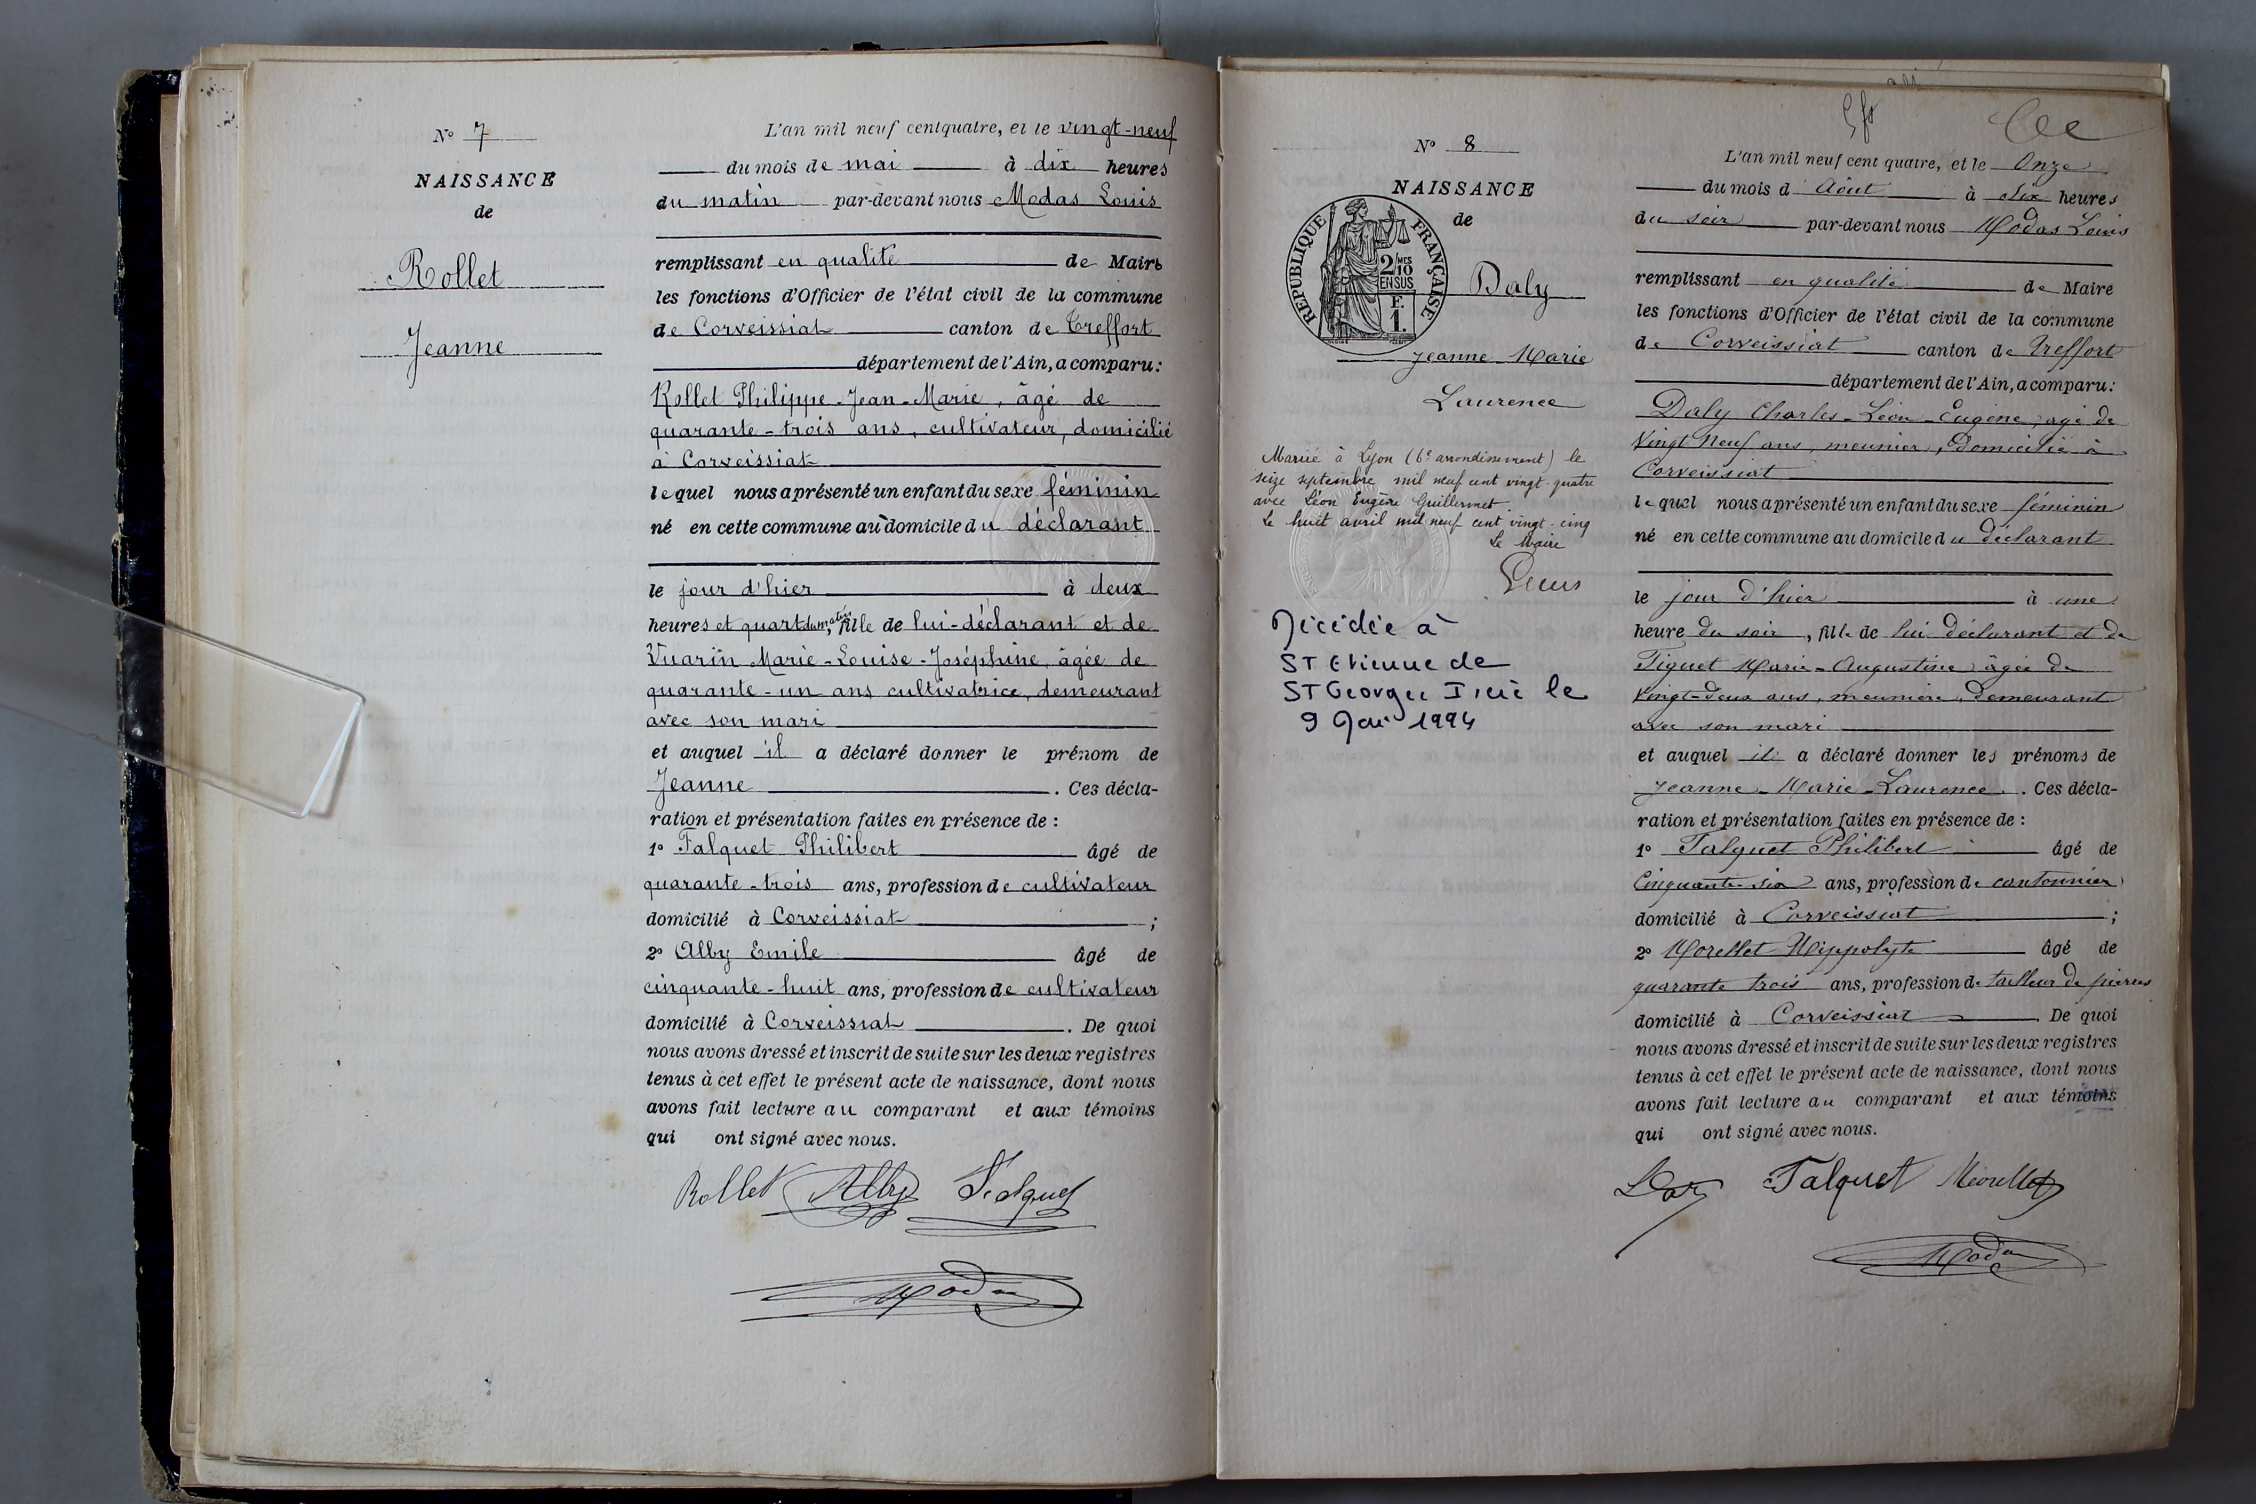 N° 7
NAISSANCE
de
Rollet
Jeanne
L'an mil neuf cent quatre, et le vingt-neuf
du mois de mai à dix heures
du matin par-devant nous Modas Louis
remplissant en qualité de Maire
les fonctions d'Officier de l'état civil de la commune
de Corveissiat canton de Treffort
département de l'Ain, a comparu:
Rollet Philippe-Jean-Marie, âgé de
quarante-trois ans, cultivateur, domicilié
à Corveissiat
lequel nous a présenté un enfant du sexe féminin
né en cette commune au domicile du déclarant
le jour d'hier à deux
heures et quart du matin, fille de lui-déclarant et de
Vuarin Marie-Louise-Joséphine, âgée de
quarante-un ans, cultivatrice, demeurant
avec son mari
et auquel il a déclaré donner le prénom de
Jeanne. Ces décla-
ration et présentation faites en présence de :
1° Falquet Philibert âgé de
quarante-trois ans, profession de cultivateur
domicilié à Corveissiat ;
2° Alby Emile âgé de
cinquante-huit ans, profession de cultivateur
domicilié à Corveissiat. De quoi
nous avons dressé et inscrit de suite sur les deux registres
tenus à cet effet le présent acte de naissance, dont nous
avons fait lecture au comparant et aux témoins
qui ont signé avec nous.
Rollet Alby Falquet
Modas
N° 8
NAISSANCE
de
REPUBLIQUE FRANÇAISE
2/10 MES
EN SUS
F.
1.
Daly
Jeanne Marie
Laurence
Mariée à Lyon (6e arrondissement) le
seize septembre mil neuf cent vingt-quatre
avec Léon Eugène Guillermet.
Le huit avril mil neuf cent vingt-cinq
Le Maire
Décédée à
ST Etienne de
ST Georges Isère le
9 1994
L'an mil neuf cent quatre, et le Onze
du mois d Août à six heures
du soir par-devant nous Modas Louis
remplissant en qualité de Maire
les fonctions d'Officier de l'état civil de la commune
de Corveissiat canton de Treffort
département de l'Ain, a comparu:
Daly Charles-Léon-Eugène, âgé de
Vingt Neuf ans, meunier, domicilié à
Corveissiat
lequel nous a présenté un enfant du sexe féminin
né en cette commune au domicile du déclarant
le jour d'hier à une
heure du soir, fille de lui déclarant et de
Tiquet Marie-Augustine âgée de
Vingt-deux ans, meunière, demeurant
avec son mari
et auquel il a déclaré donner les prénoms de
Jeanne-Marie-Laurence. Ces décla-
ration et présentation faites en présence de :
1° Falquet Philibert âgé de
Cinquante-six ans, profession de cantonnier
domicilié à Corveissiat ;
2° Morellet Hippolyte âgé de
quarante trois ans, profession de tailleur de pierres
domicilié à Corveissiat. De quoi
nous avons dressé et inscrit de suite sur les deux registres
tenus à cet effet le présent acte de naissance, dont nous
avons fait lecture au comparant et aux témoins
qui ont signé avec nous.
Falquet Morellet
Modas